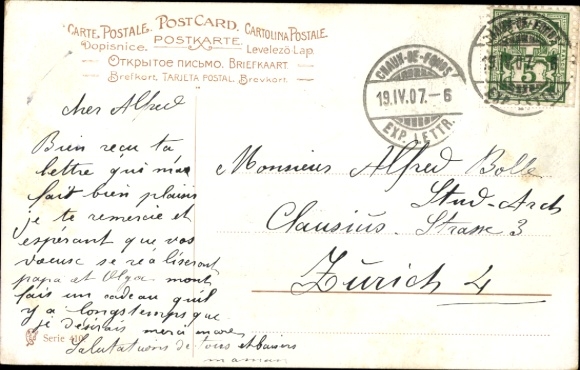 CARTE POSTALE. POSTCARD. CARTOLINA POSTALE.
Dopisnice. POSTKARTE Levelező Lap.
Открытое письмо. BRIEFKAART.
Brefkort. TARJETA POSTAL. Brevkort.
CHAUX-DE-FONDS
19.IV.07.-6
EXP. LETTR.
5
cher Alfred
Bien reçu ta
lettre qui m'a
fait bien plaisir
je te remercie et
espérant que vos
vœux se réaliseront
papa et Olga mont
fais un cadeau qu'il
y a longstemps que
je désirais merci encore
Salutations de tous et baisers
maman
Monsieur Alfred Bolle
Stud-Arch
Clausius-Strasse 3
Zürich 4
Serie 410